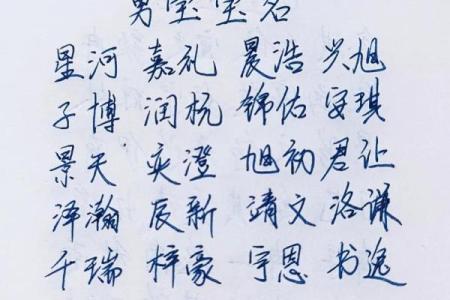 男宝宝名
星河 嘉礼 晨浩 兴旭
子博 润杭 锦佑 安琪
景天 奕澄 旭初 君让
泽瀚 辰新 靖文 洛谦
千瑞 梓豪 宇恩 书逸